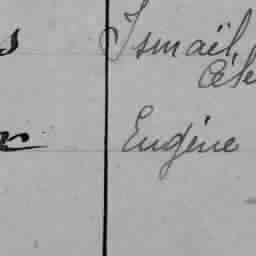 s Ismaïl,
Céle
r Eugène